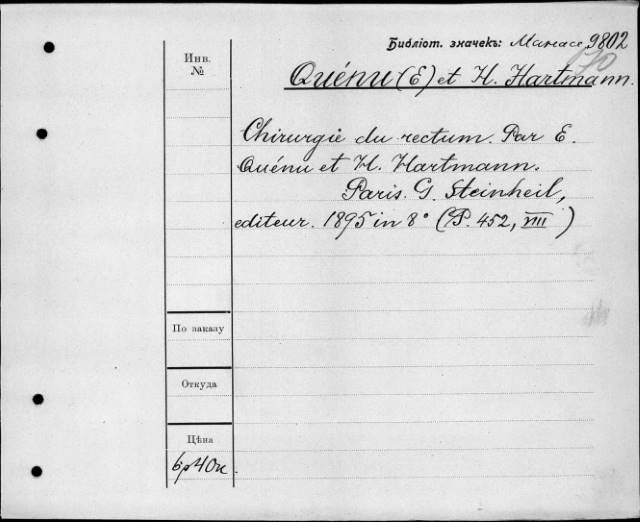 Библіот. значекъ: Манасе 9802
Инв.
№
Quénu (E) et H. Hartmann.
Chirurgie du rectum. Par E.
Quénu et H. Hartmann.
Paris. G. Steinheil,
editeur. 1895 in 8° (P. 452, VIII)
По заказу
Откуда
Цѣна
6р 40к.